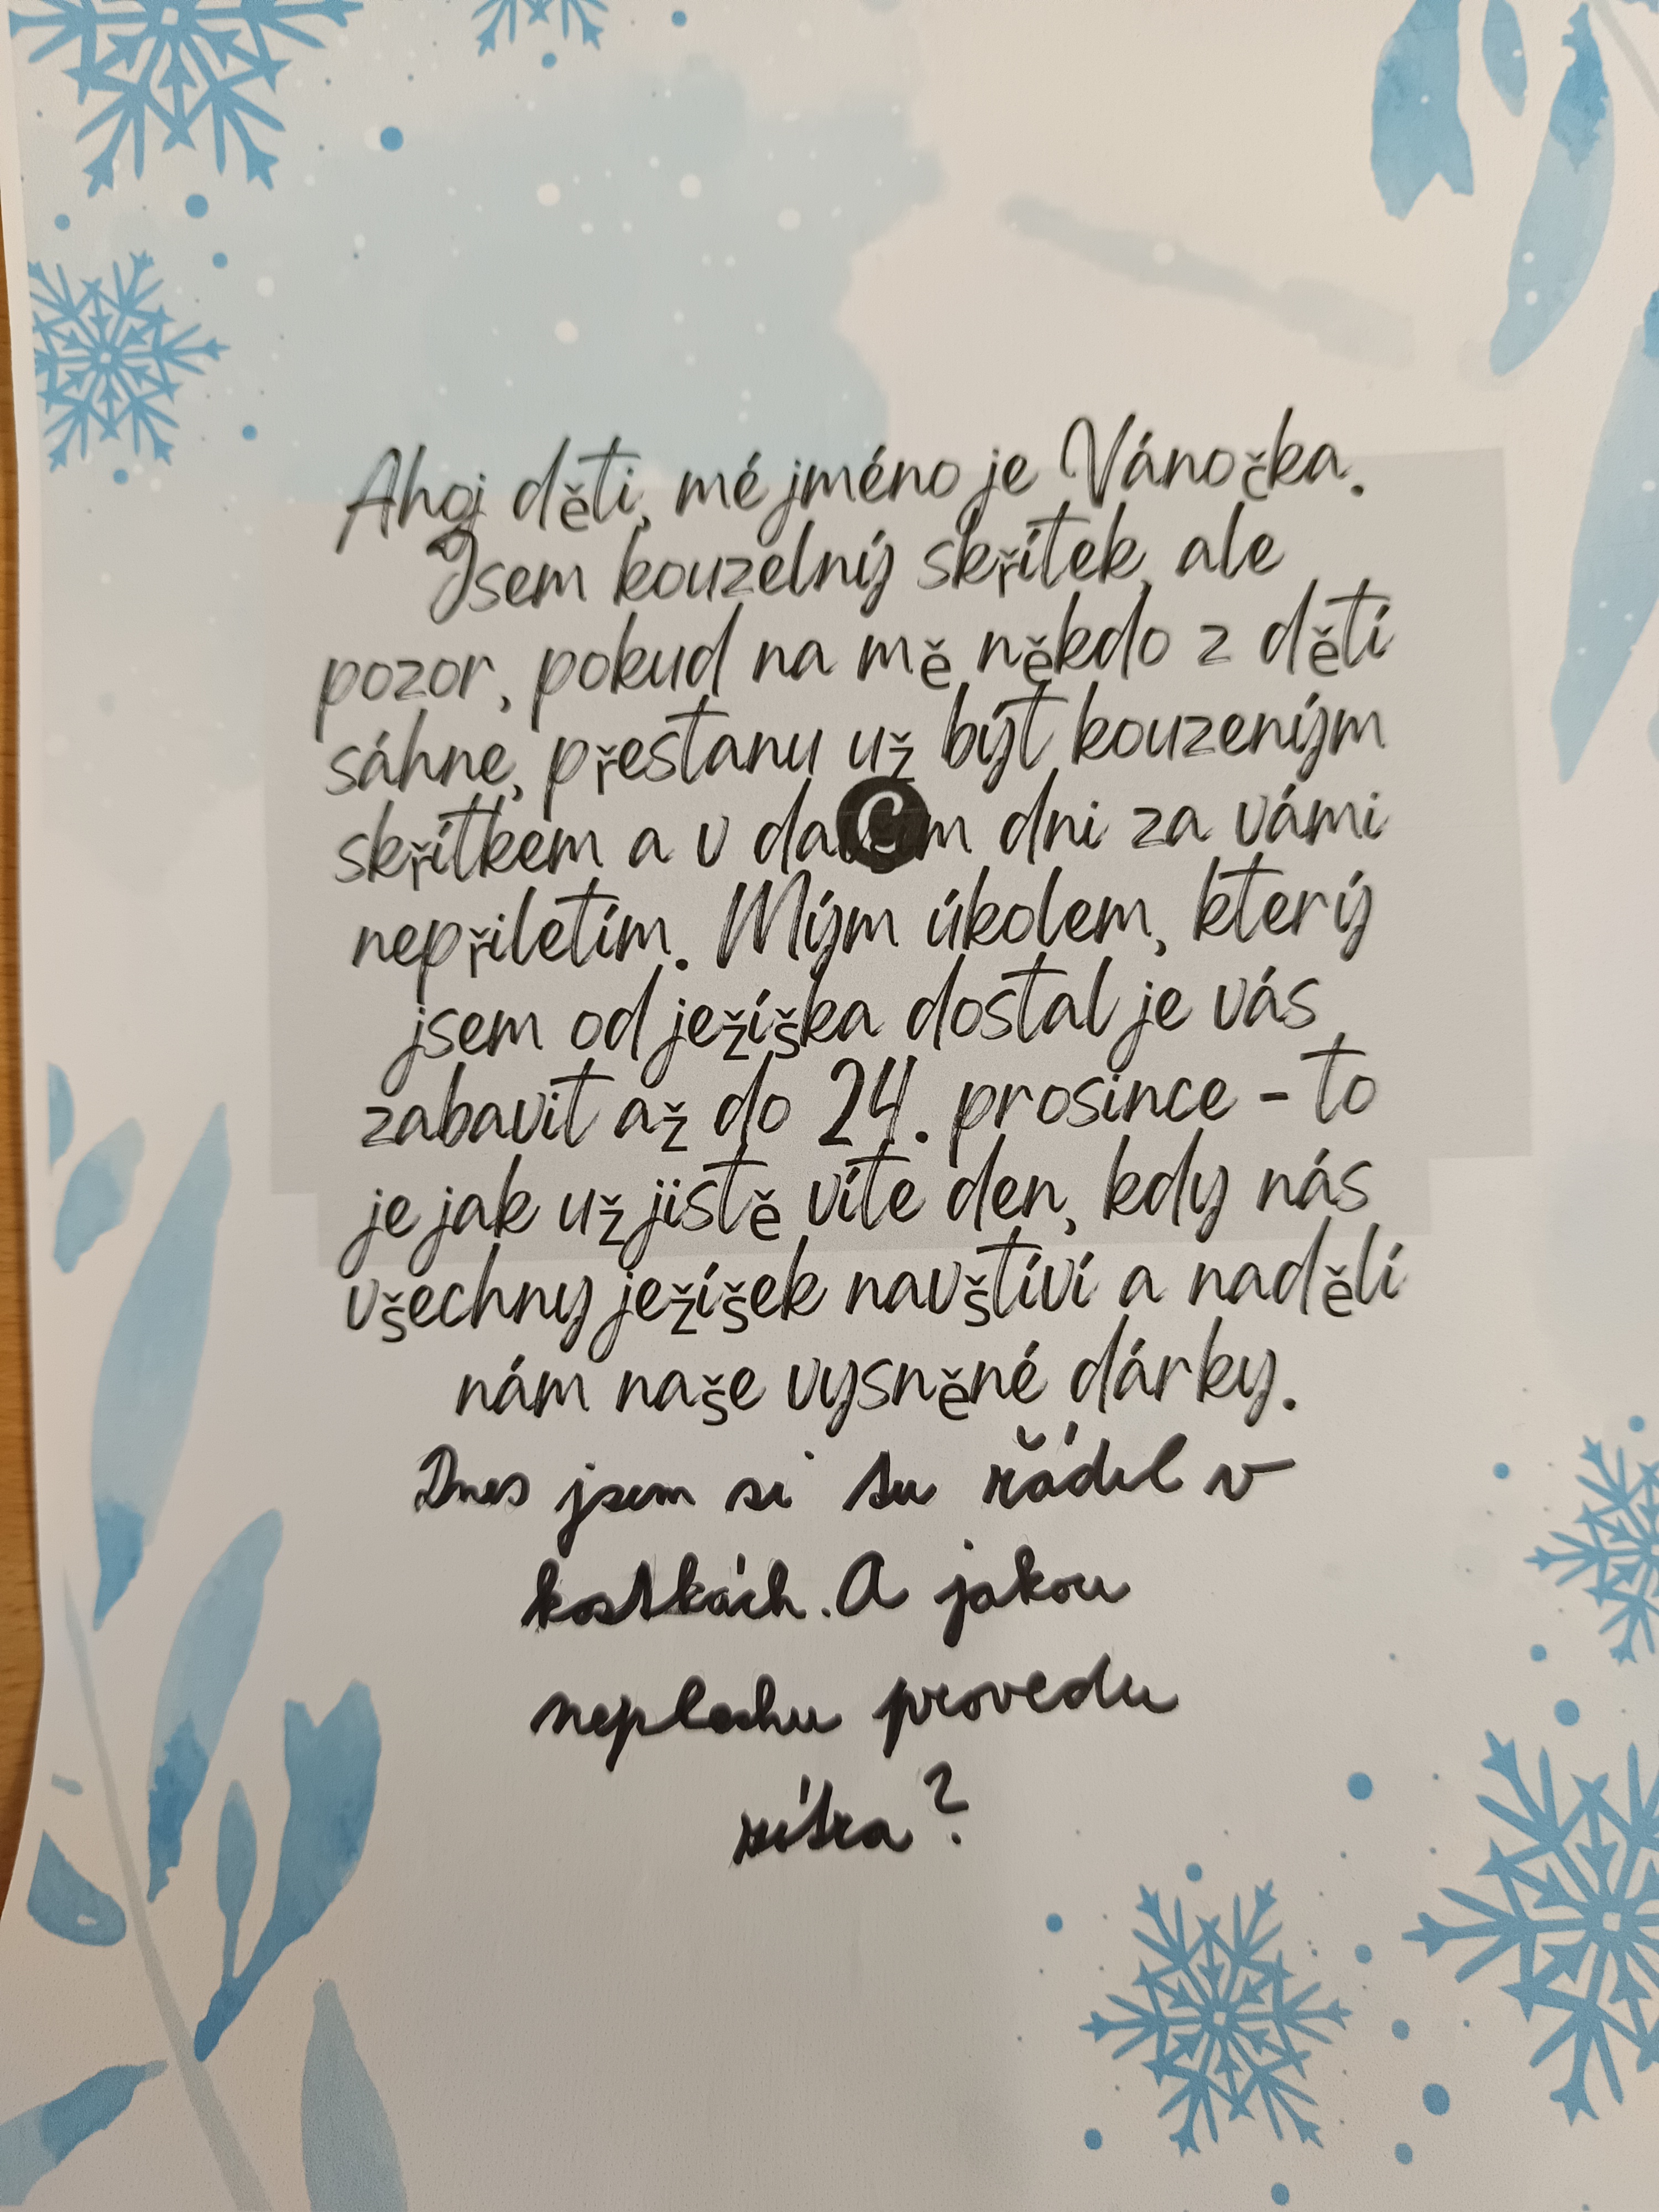 Ahoj děti, mé jméno je Vánočka.
Jsem kouzelný skřítek, ale
pozor, pokud na mě někdo z dětí
sáhne, přestanu už být kouzeným
skřítkem a v C dni za vámi
nepřiletím. Mým úkolem, který
jsem od ježíška dostal je vás
zabavit až do 24. prosince - to
je jak už jistě víte den, kdy nás
všechny ježíšek navštíví a nadělí
nám naše vysněné dárky.
Dnes jsem si tu řádil v
kostkách. A jakou
neplechu provedu
zítra?